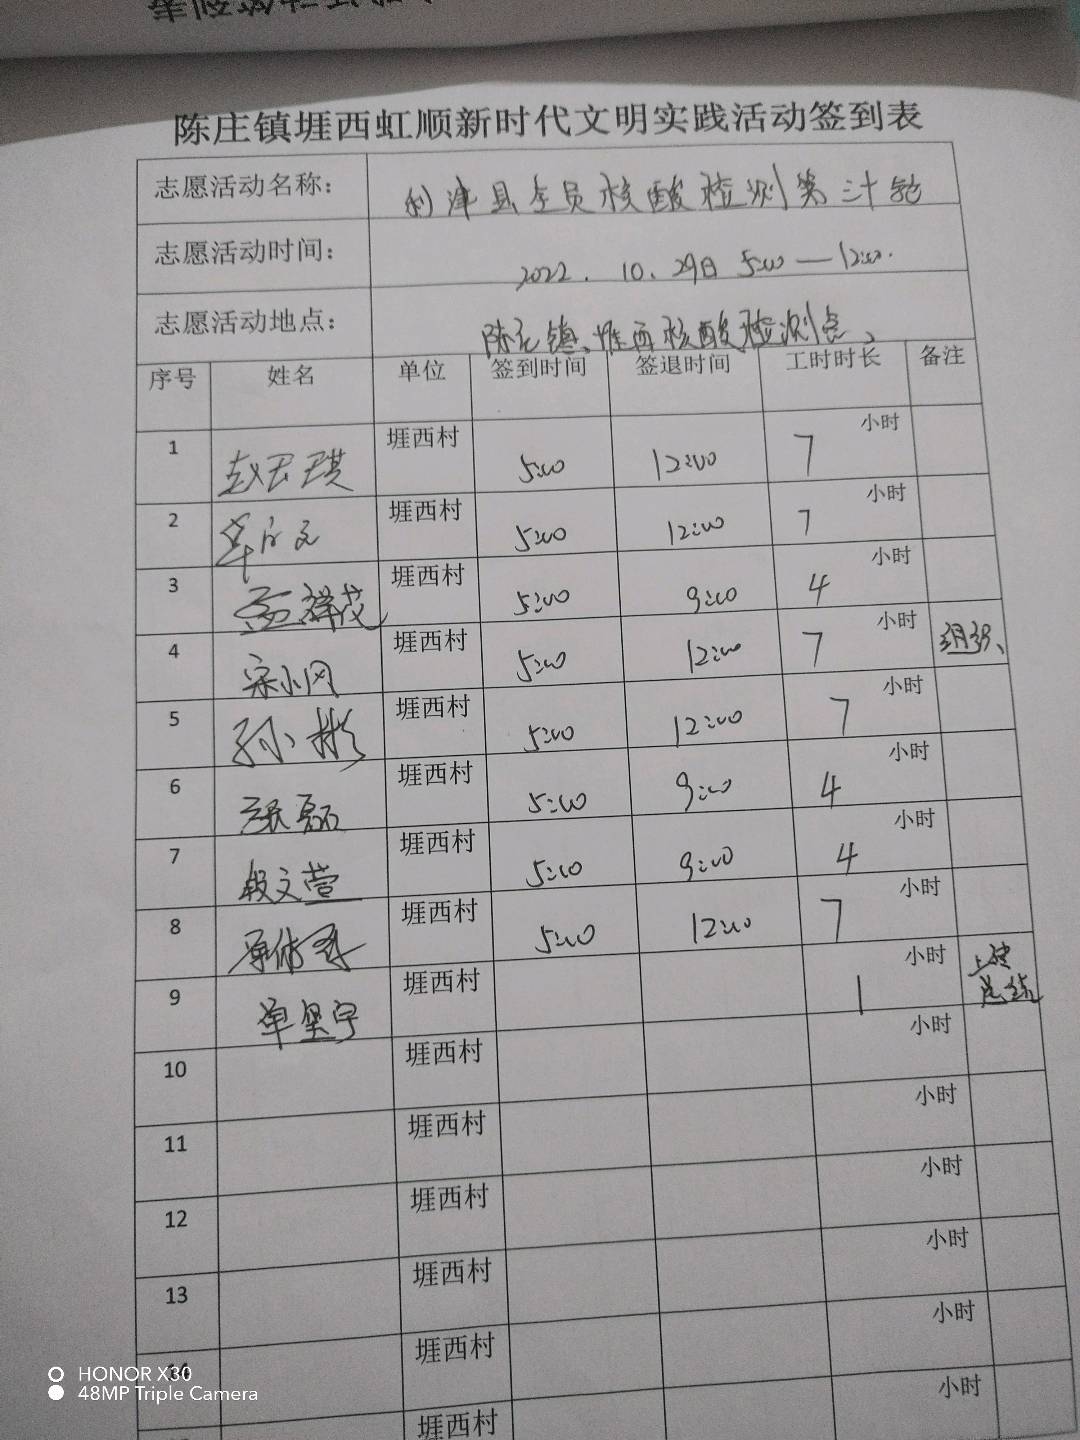 陈庄镇堐西虹顺新时代文明实践活动签到表
志愿活动名称： 利津县全员核酸检测第三十轮
志愿活动时间： 2022.10.29日 5:00—12:00.
志愿活动地点： 陈庄镇、堐西核酸检测点、
序号 姓名 单位 签到时间 签退时间 工时时长 备注
1 赵君琪 堐西村 5:00 12:00 7 小时
2 堐西村 5:00 12:00 7 小时
3 孟祥茂 堐西村 5:00 9:00 4 小时
4 宋小冈 堐西村 5:00 12:00 7 小时 组织、
5 孙彬 堐西村 5:00 12:00 7 小时
6 张磊 堐西村 5:00 9:00 4 小时
7 段文萱 堐西村 5:00 9:00 4 小时
8 堐西村 5:00 12:00 7 小时
9 单坚宇 堐西村 1 小时 上传总结
10 堐西村 小时
11 堐西村 小时
12 堐西村 小时
13 堐西村 小时
14 堐西村 小时
堐西村 小时
HONOR X30
48MP Triple Camera